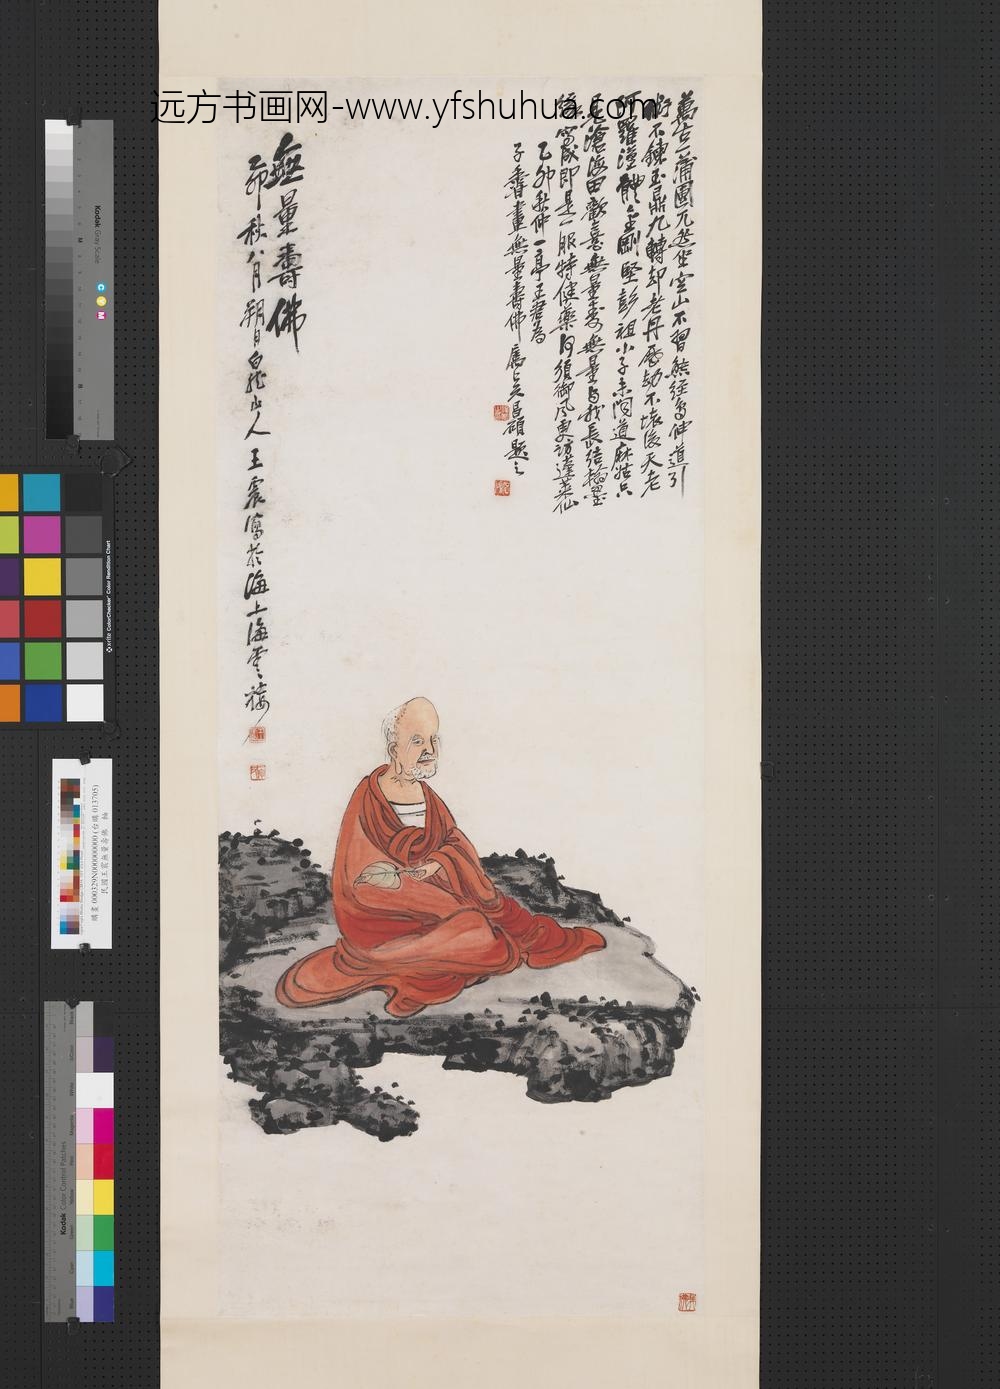 远方书画网-www.yfshuhua.com
萬古一蒲團兀然坐空山不習熊經鳥伸道引
術不鍊玉鼎九轉却老丹歷劫不壞後天老
阿羅漢體金剛堅彭祖小子未聞道麻姑只
見滄海田歡喜無量壽無量與我長結翰墨
緣寫成即是一服特健藥何須御風更訪蓬萊仙
乙卯秋仲一亭王君為
子壽畫無量壽佛屬吳昌碩題之
無量壽佛
乙卯秋八月朔日白龍山人王震寫於海上海雲樓
Kodak Gray Scale
C
Y
M
x-rite ColorChecker Color Rendition Chart
購畫 000329N000000000 (台購 013705)
民國王震無量壽佛 軸
Kodak Color Control Patches